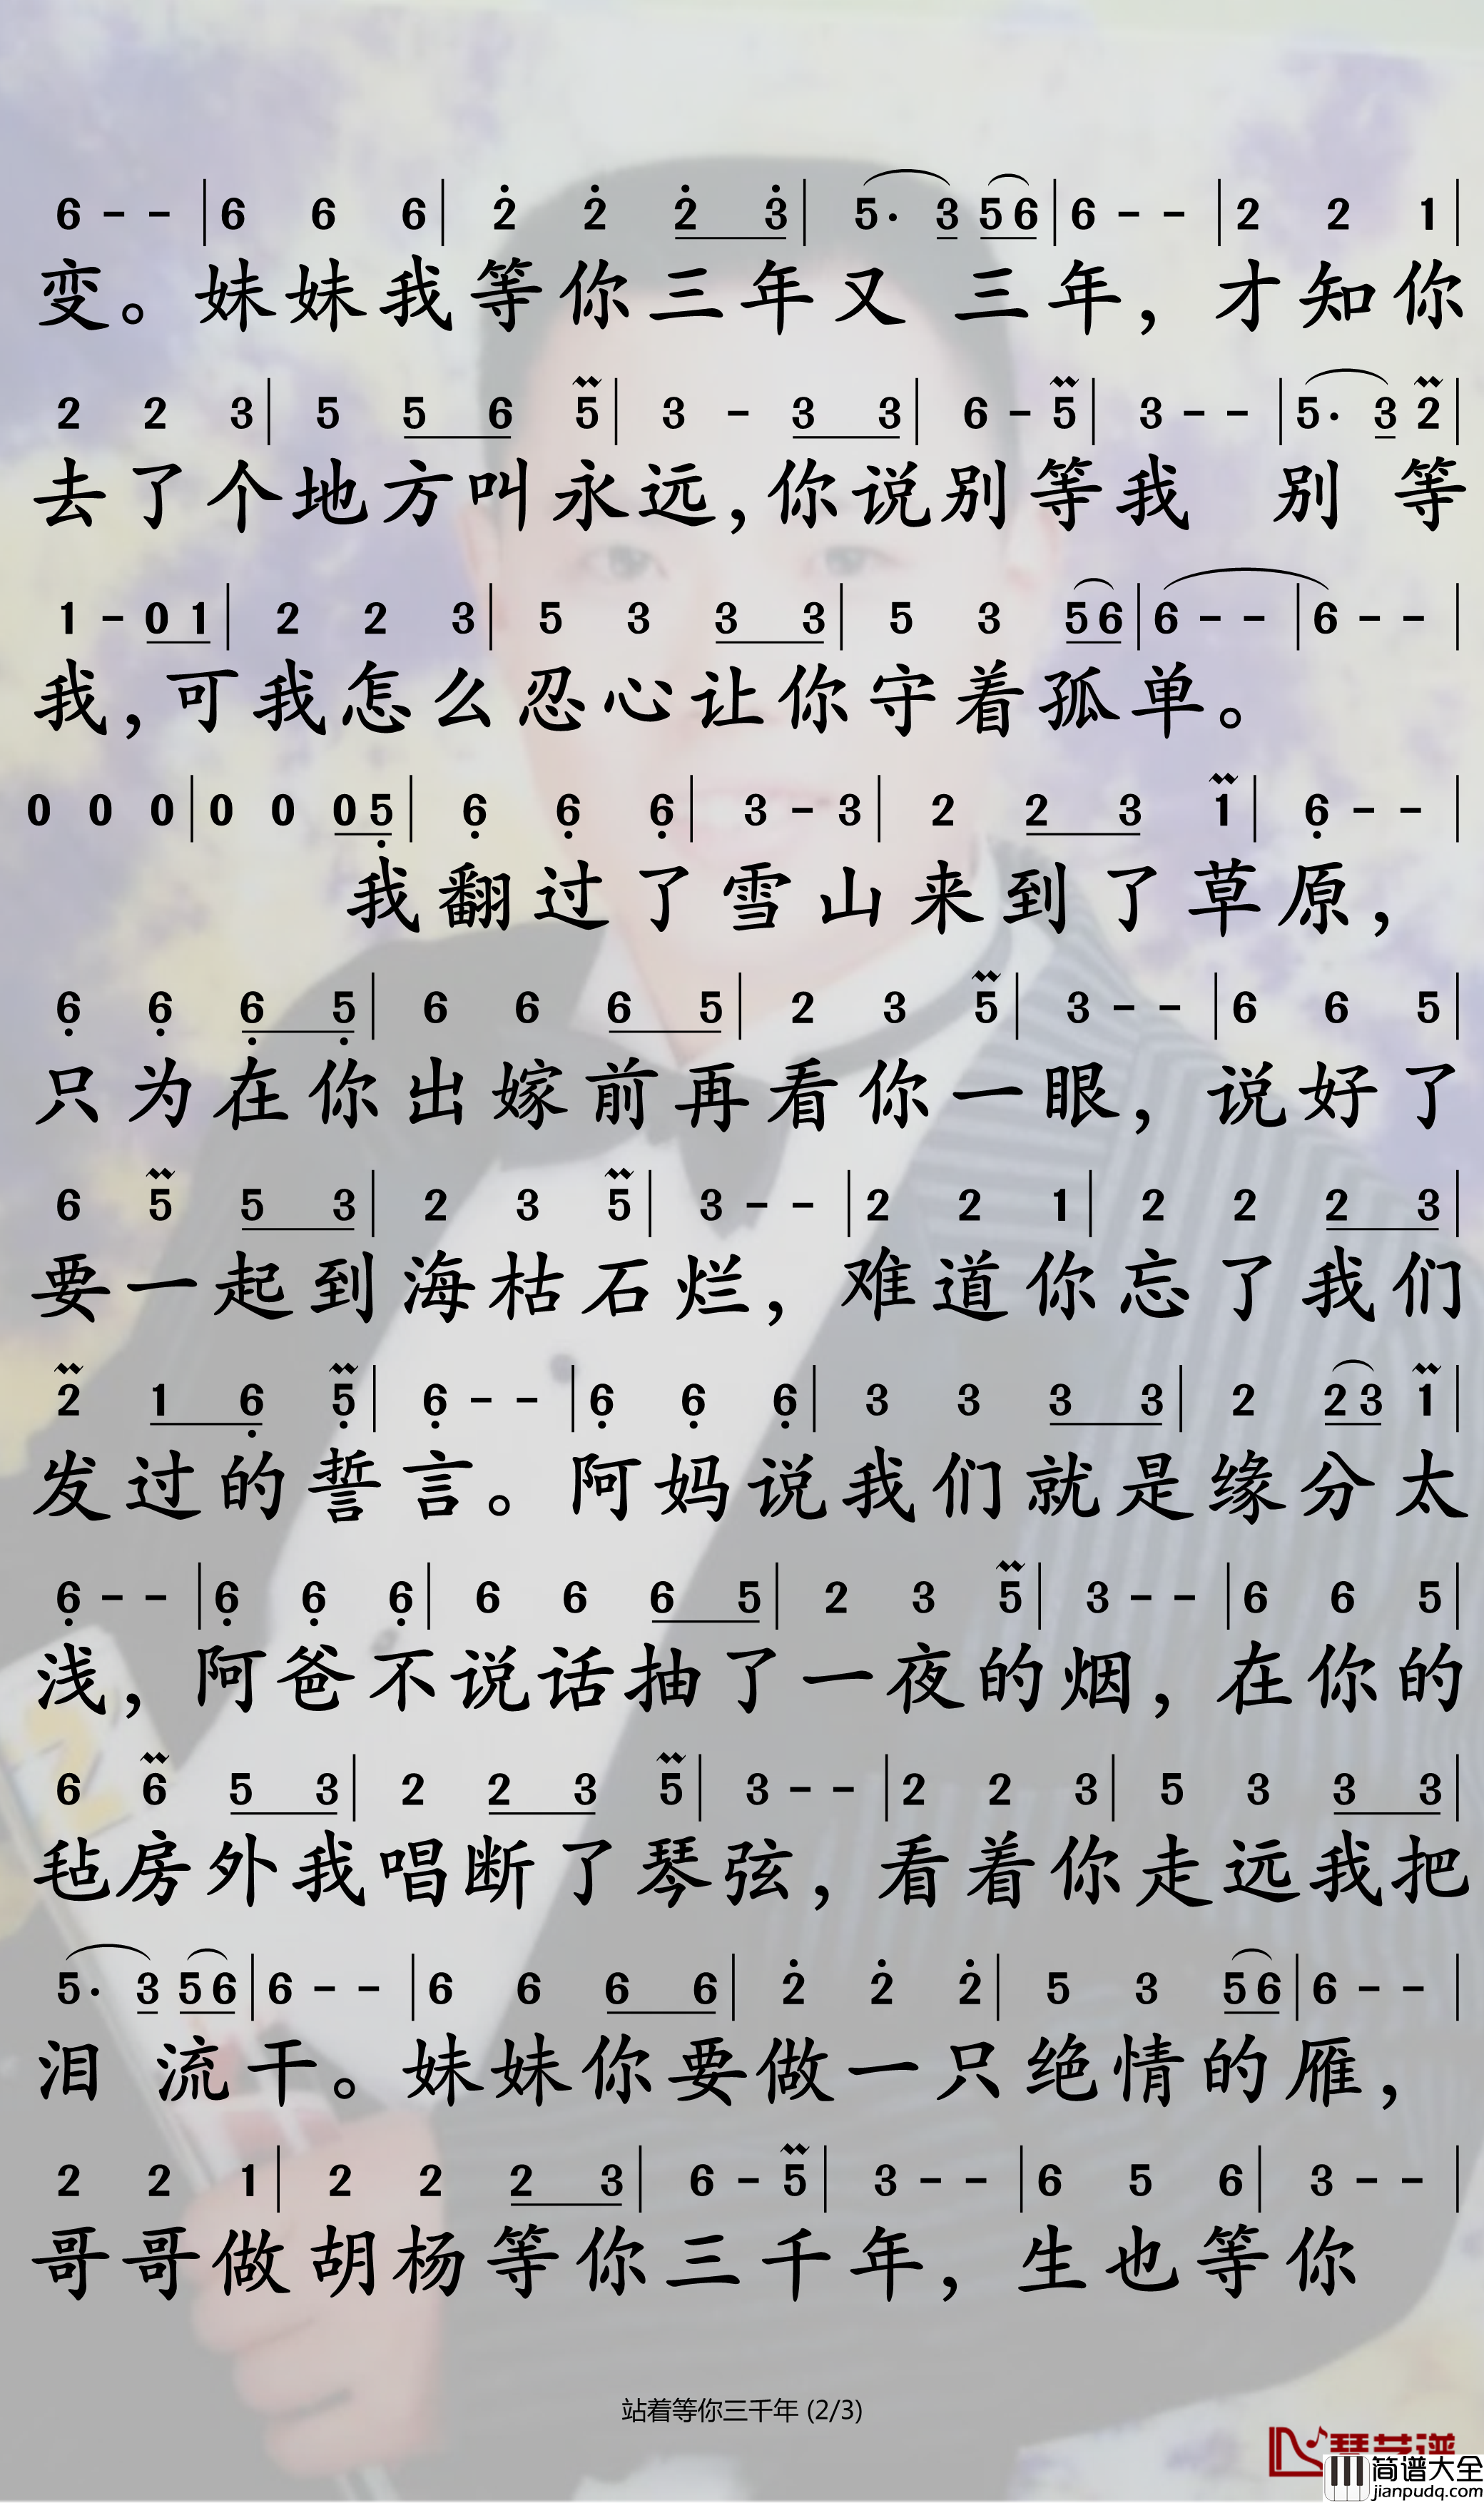 6 - - | 6 6 6 | 2̇ 2̇ 2̇ 3̇ | 5· 3 5 6 | 6 - - | 2 2 1 |
变。妹妹我等你三年又 三年，才知你
2 2 3 | 5 5 6 5 | 3 - 3 3 | 6 - 5 | 3 - - | 5· 3 2 |
去了个地方叫永远，你说别等我 别 等
1 - 0 1 | 2 2 3 | 5 3 3 3 | 5 3 5 6 | 6 - - | 6 - - |
我，可我怎么忍心让你守着孤单。
0 0 0 | 0 0 0 5̣ | 6̣ 6̣ 6̣ | 3 - 3 | 2 2 3 1 | 6̣ - - |
我翻过了雪山来到了草原，
6̣ 6̣ 6̣ 5̣ | 6 6 6 5 | 2 3 5 | 3 - - | 6 6 5 |
只为在你出嫁前再看你一眼，说好了
6 5 5 3 | 2 3 5 | 3 - - | 2 2 1 | 2 2 2 3 |
要一起到海枯石烂，难道你忘了我们
2 1 6̣ 5̣ | 6̣ - - | 6̣ 6̣ 6̣ | 3 3 3 3 | 2 2 3 1 |
发过的誓言。阿妈说我们就是缘分太
6̣ - - | 6̣ 6̣ 6̣ | 6 6 6 5 | 2 3 5 | 3 - - | 6 6 5 |
浅，阿爸不说话抽了一夜的烟，在你的
6 6 5 3 | 2 2 3 5 | 3 - - | 2 2 3 | 5 3 3 3 |
毡房外我唱断了琴弦，看着你走远我把
5· 3 5 6 | 6 - - | 6 6 6 6 | 2̇ 2̇ 2̇ | 5 3 5 6 | 6 - - |
泪 流干。妹妹你要做一只绝情的雁，
2 2 1 | 2 2 2 3 | 6 - 5 | 3 - - | 6 5 6 | 3 - - |
哥哥做胡杨等你三千年，生也等你
站着等你三千年 (2/3)
简谱大全
jianpudq.com